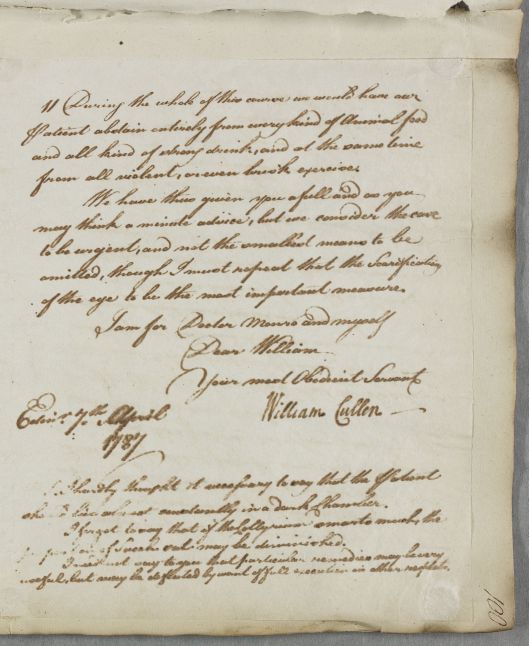 11 During the whole of this course we would have our
Patient abstain entirely from every kind of Animal food
and all kind of strong drink, and at the same time
from all violent, or even brisk exercise.
We have thus given you a full and as you
may think a minute advice, but we consider the case
to be urgent, and not the smallest means to be
omitted, though I must repeat that the Scarification
of the eye to be the most important measure.
I am for Doctor Monro and myself
Dear William
Your most Obedient Servant
William Cullen
Edinr. 7th April
1787
I hardly thought it necessary to say that the Patient
should live almost constantly in a dark Chamber.
I forgot to say that if the Collyrium smarts much, the
of may be diminished.
I need not say to you that particular remedies may be very
useful, but may be defeated by want of full execution in other respects.
100